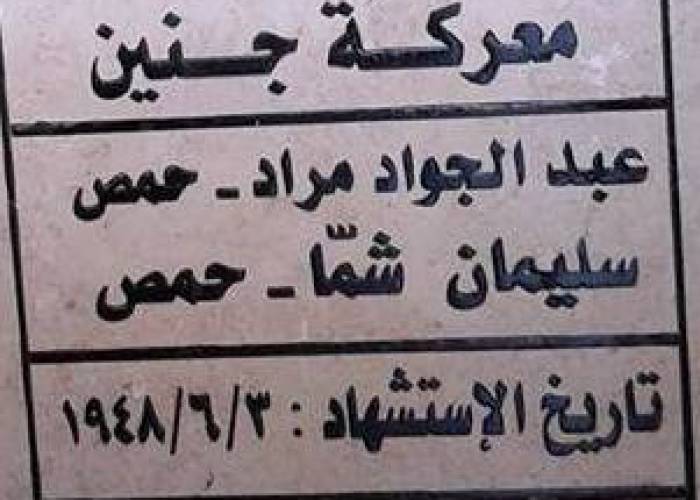 معركة جنين
عبد الجواد مراد - حمص
سليمان شمّا - حمص
تاريخ الإستشهاد : ١٩٤٨/٦/٣